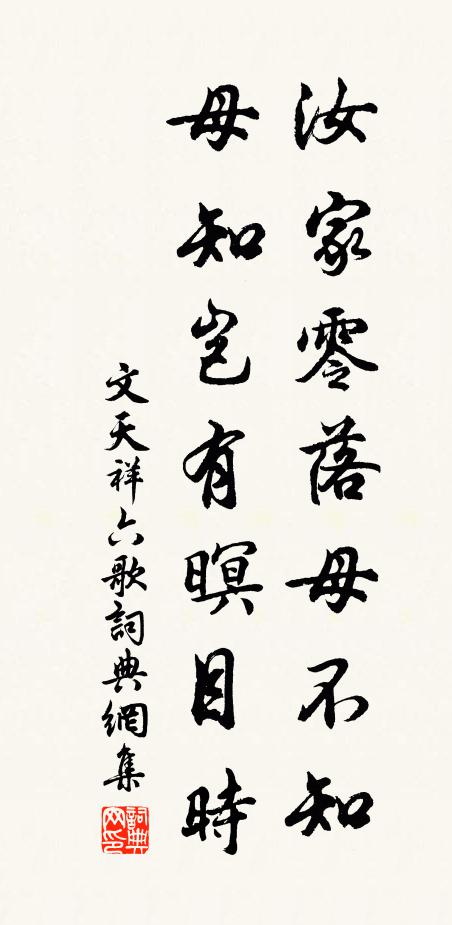 汝家零落母不知
母知岂有暝目時
文天祥六歌詞典網集
詞典网印